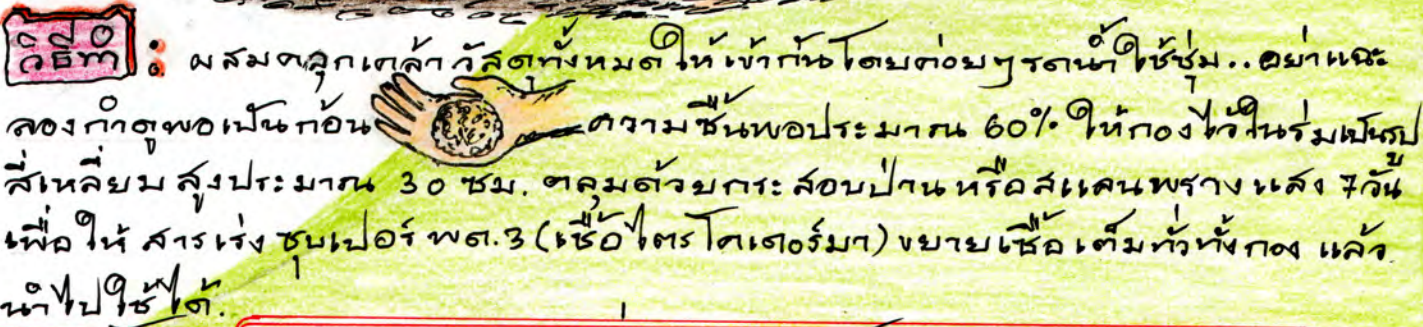 วิธีทำ : ผสมคลุกเคล้าวัสดุทั้งหมดให้เข้ากันโดยค่อยๆรดน้ำให้ชุ่ม..อย่าแฉะ
ลองกำดูพอเป็นก้อน ความชื้นพอประมาณ 60% ให้กองไว้ในร่มเป็นรูป
สี่เหลี่ยม สูงประมาณ 30 ซม. คลุมด้วยกระสอบป่าน หรือสแลนพรางแสง 7 วัน
เพื่อให้ สารเร่ง ซุปเปอร์ พด.3 (เชื้อไตรโคเดอร์มา) ขยายเชื้อ เต็มทั่วทั้งกอง แล้ว
นำไปใช้ได้.